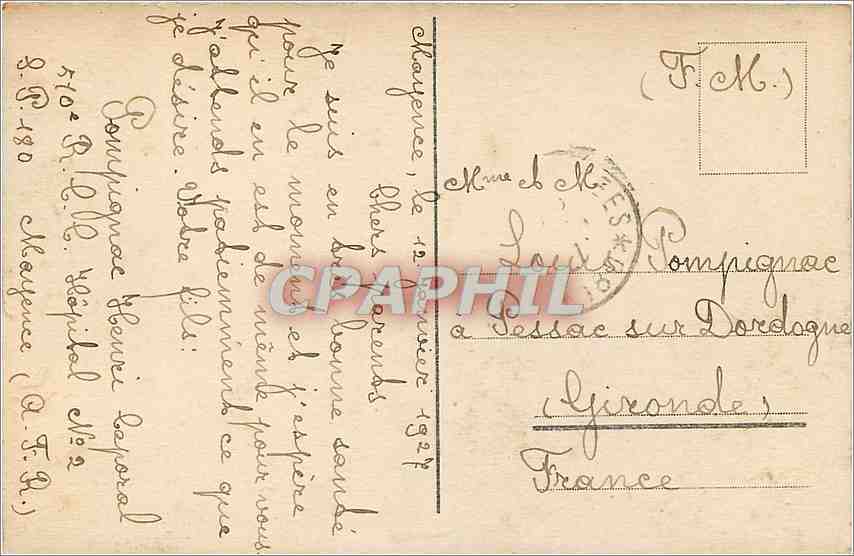 Mayence, le 12 Janvier 1927
Chers Parents
Je suis en très bonne santé
pour le moment et j'espère
qu'il en est de même pour vous
j'attends patiemment ce que
je désire. Votre fils:
Pompignac Henri Caporal
510e R. C. C. Hôpital No 2
S. P. 180 Mayence (A. F. R.)
(F. M.)
Mme et M.
Louis Pompignac
à Pessac sur Dordogne
(Gironde)
France
CPAPHIL